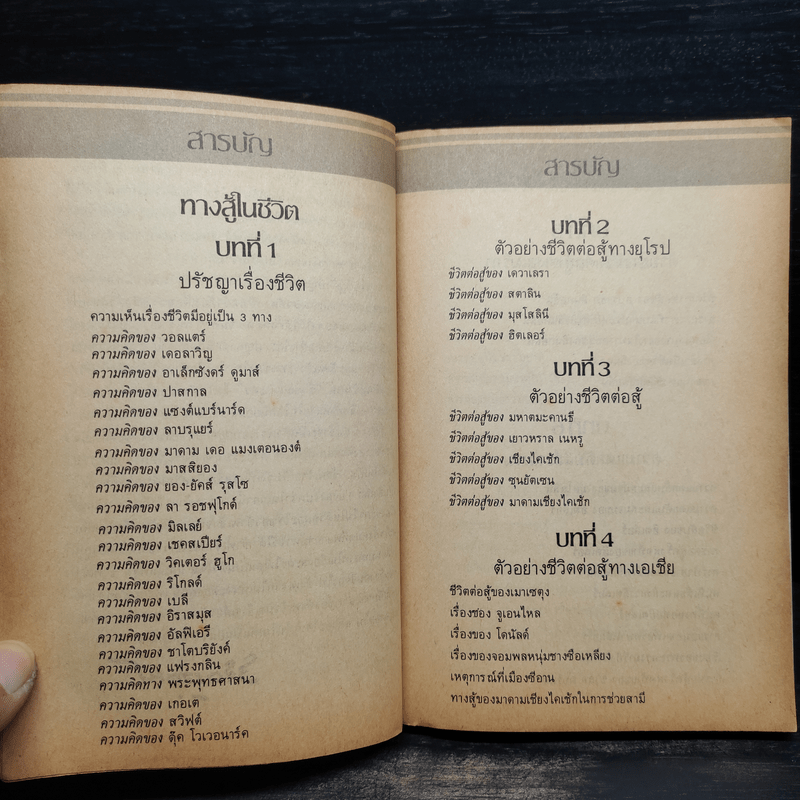 สารบัญ
ทางสู้ในชีวิต
บทที่ 1
ปรัชญาเรื่องชีวิต
ความเห็นเรื่องชีวิตมีอยู่เป็น 3 ทาง
ความคิดของ วอลแตร์
ความคิดของ เดอลาวิญ
ความคิดของ อาเล็กซังดร์ ดูมาส์
ความคิดของ ปาสกาล
ความคิดของ แซงต์แบร์นาร์ด
ความคิดของ ลาบรุแยร์
ความคิดของ มาดาม เดอ แมงเตอนองต์
ความคิดของ มาสสิยอง
ความคิดของ ยอง-ยัคส์ รุสโซ
ความคิดของ ลา รอชฟุโกต์
ความคิดของ มิลเลย์
ความคิดของ เชคสเปียร์
ความคิดของ วิคเตอร์ ฮูโก
ความคิดของ ริโกลต์
ความคิดของ เบลี
ความคิดของ อิราสมุส
ความคิดของ อัลฟิเอรี
ความคิดของ ชาโตบริยังค์
ความคิดของ แฟรงกลิน
ความคิดทาง พระพุทธศาสนา
ความคิดของ เกอเต
ความคิดของ สวิฟต์
ความคิดของ ดุ๊ค โวเวอนาร์ค
สารบัญ
บทที่ 2
ตัวอย่างชีวิตต่อสู้ทางยุโรป
ชีวิตต่อสู้ของ เดวาเลรา
ชีวิตต่อสู้ของ สตาลิน
ชีวิตต่อสู้ของ มุสโสลินี
ชีวิตต่อสู้ของ ฮิตเลอร์
บทที่ 3
ตัวอย่างชีวิตต่อสู้
ชีวิตต่อสู้ของ มหาตมะคานธี
ชีวิตต่อสู้ของ เยาวหราล เนหรู
ชีวิตต่อสู้ของ เชียงไคเช้ก
ชีวิตต่อสู้ของ ซุนยัตเซน
ชีวิตต่อสู้ของ มาดามเชียงไคเช้ก
บทที่ 4
ตัวอย่างชีวิตต่อสู้ทางเอเชีย
ชีวิตต่อสู้ของเมาเซตุง
เรื่องของ จูเอนไหล
เรื่องของ โดนัลด์
เรื่องของจอมพลหนุ่มชางซือเหลียง
เหตุการณ์ที่เมืองซีอาน
ทางสู้ของมาดามเชียงไคเช้กในการช่วยสามี